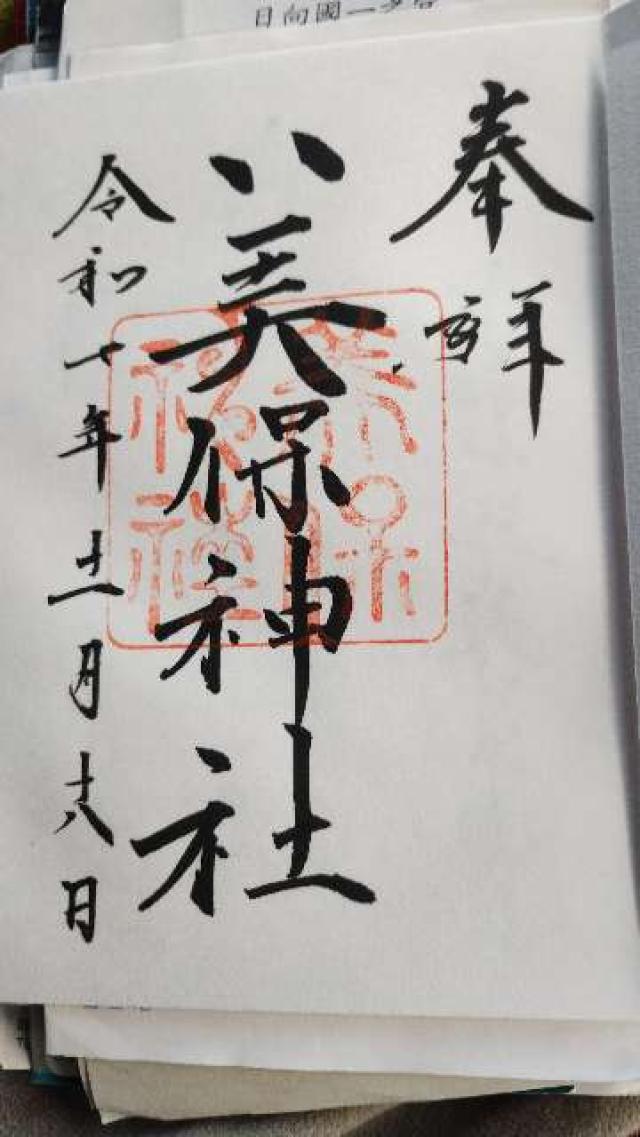 日向國一之宮
奉拝
美保神社
令和七年十二月十八日